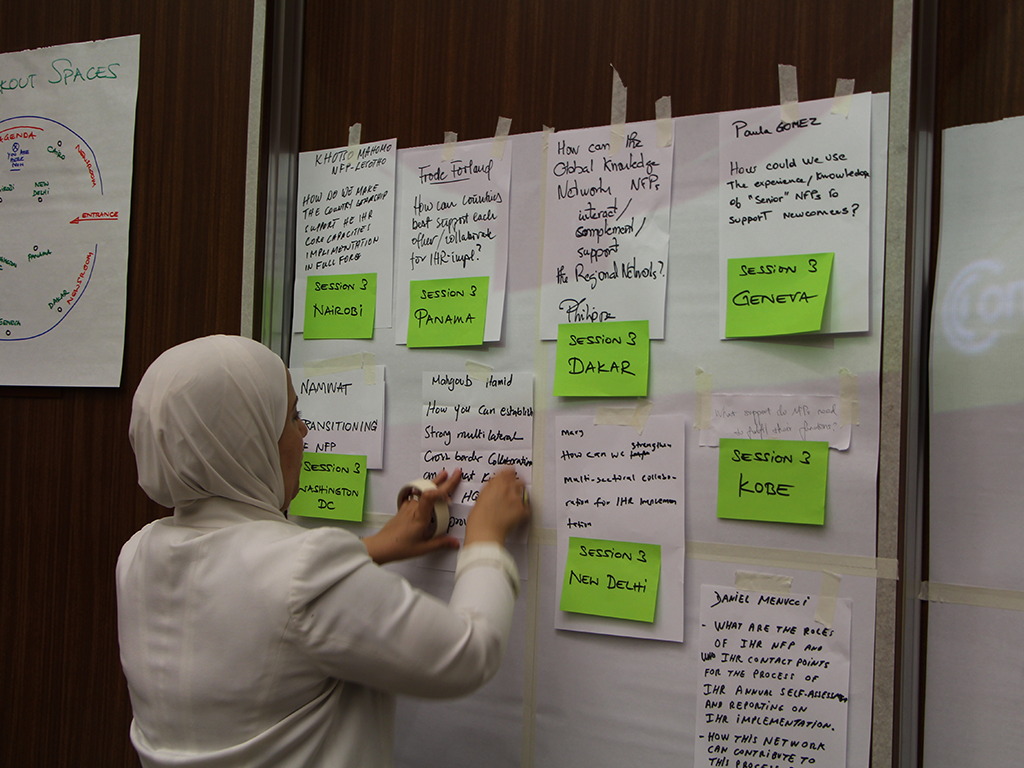 KOUT SPACES
AGENDA
YOU ARE
HERE
CAIRO
NEWSROOM
NEW
DELHI
ENTRANCE
PANAMA
DAKAR
NEWSROOM
GENEVA
KHOTSO MAHOMO
NFP-LESOTHO
HOW DO WE MAKE
THE COUNTRY
SUPPORT HE IHR
CORE CAPACITIES
IMPLIMENTATION
IN FULL FORCE
SESSION 3
NAIROBI
Frode Forland
How can countries
best support each
other/collaborate
for IHR-impl.?
SESSION 3
PANAMA
How can IHR
Global Knowledge
Network NFPs
interact/
complement/
support
the Regional Networks?
SESSION 3
DAKAR
Paula GOMEZ
How could we use
The experience/knowledge
of "senior" NFPs to
support newcomers?
SESSION 3
GENEVA
NAMWAT
TRANSITIONING
NFP
SESSION 3
WASHINGTON
DC
Mahgoub Hamid
How you can establish
Strong multilateral
Cross border Collaboration
Mary
How can we strengthen
multi-sectoral collabo-
ration for IHR implemen
tation
SESSION 3
NEW DELHI
What support do NFPs need
to fulfil their functions?
SESSION 3
KOBE
DANIEL MENUCCI
- WHAT ARE THE ROLES
OF IHR NFP AND
IHR CONTACT POINTS
FOR THE PROCESS OF
IHR ANNUAL SELF-ASSESSM
AND REPORTING ON
IHR IMPLEMENTATION.
- HOW THIS NETWORK
CAN CONTRIBUTE TO
THIS PROCESS